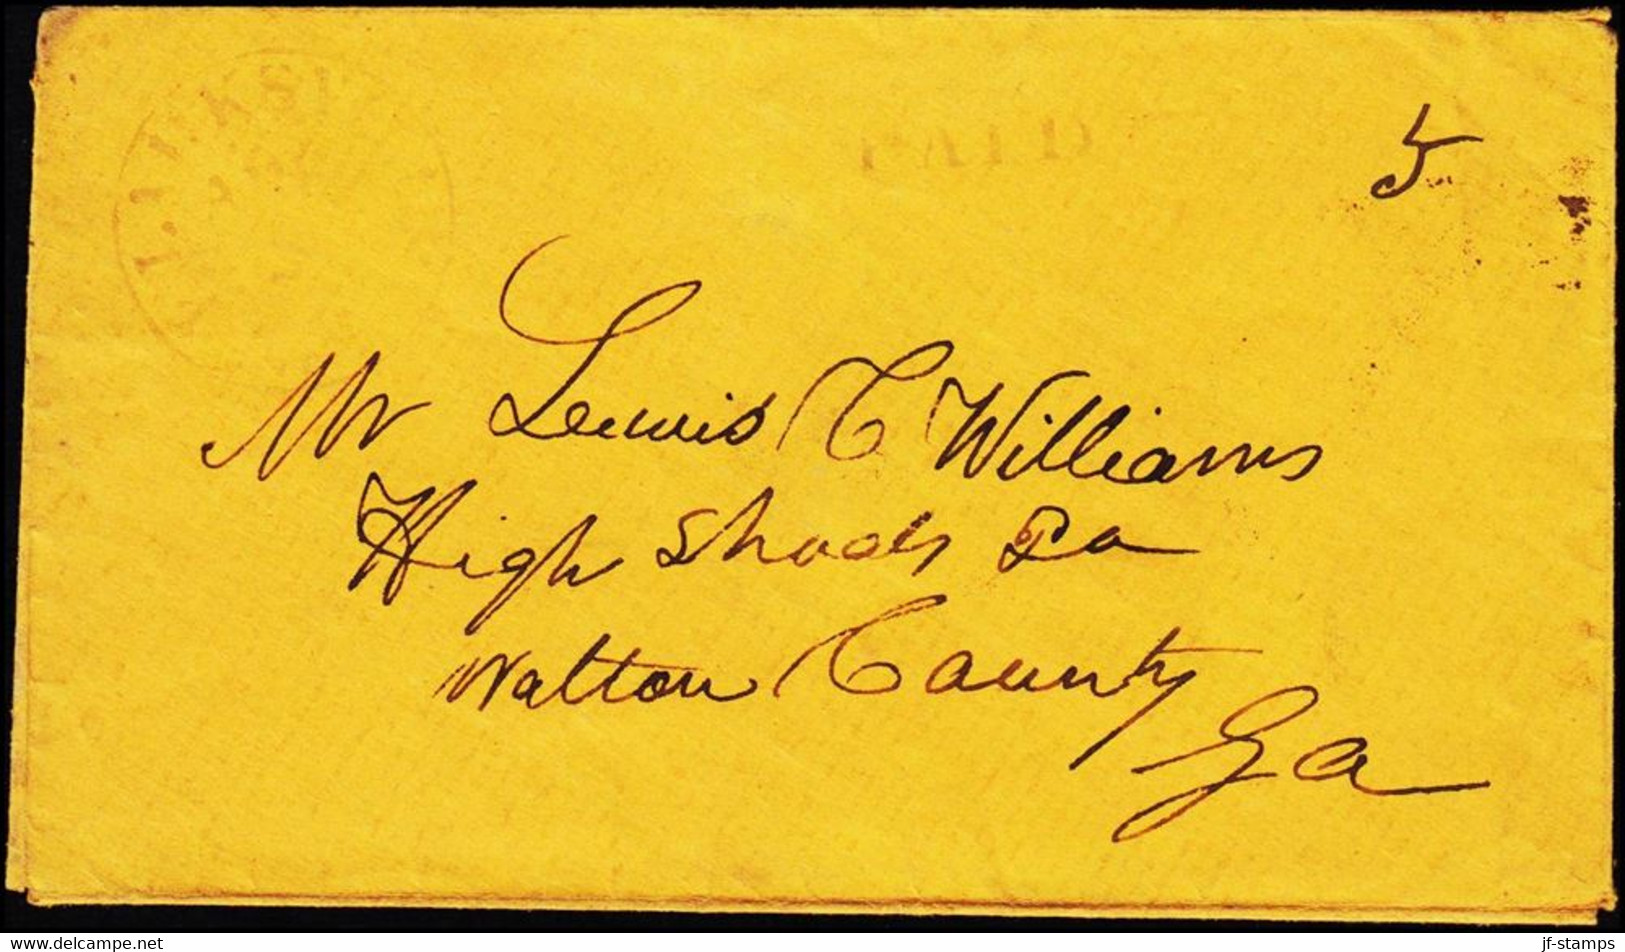 PAID
5
Mr Lewis C Williams
High Shoals Ga
Walton County
Ga
www.delcampe.net
jf-stamps